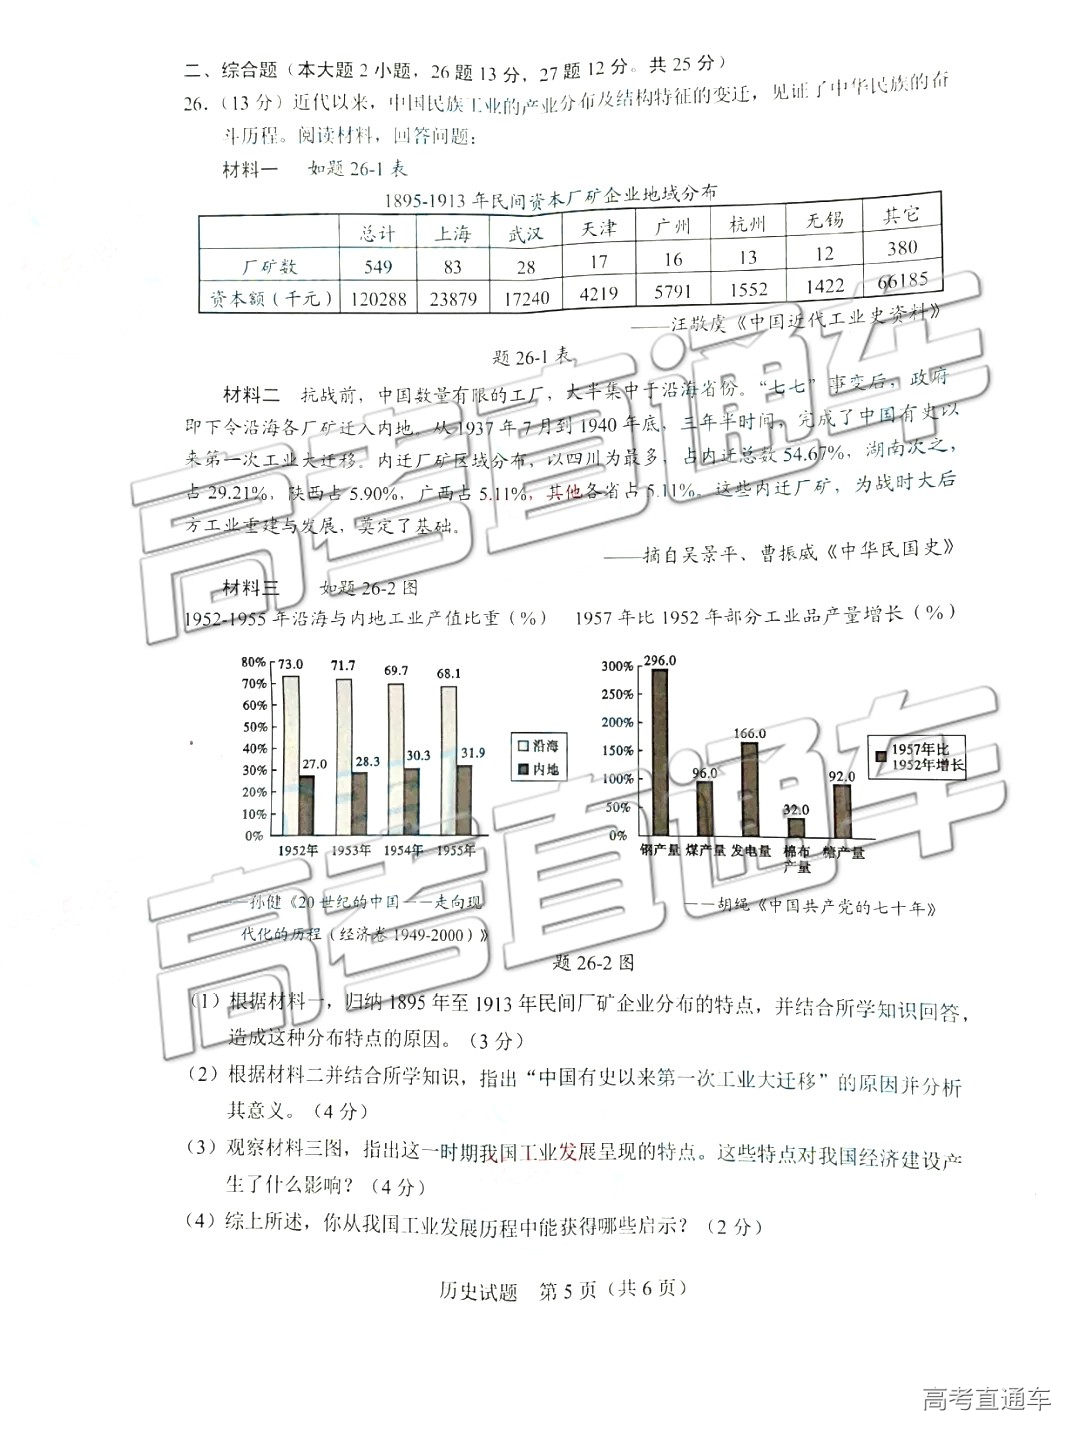 二、综合题（本大题2小题，26题13分，27题12分。共25分）
26．（13分）近代以来，中国民族工业的产业分布及结构特征的变迁，见证了中华民族的奋
斗历程。阅读材料，回答问题：
材料一 如题26-1表
1895-1913年民间资本厂矿企业地域分布
总计 上海 武汉 天津 广州 杭州 无锡 其它
厂矿数 549 83 28 17 16 13 12 380
资本额（千元） 120288 23879 17240 4219 5791 1552 1422 66185
——汪敬虞《中国近代工业史资料》
题26-1表
材料二 抗战前，中国数量有限的工厂，大半集中于沿海省份。“七七”事变后，政府
即下令沿海各厂矿迁入内地。从1937年7月到1940年底，三年半时间，完成了中国有史以
来第一次工业大迁移。内迁厂矿区域分布，以四川为最多，占内迁总数54.67%，湖南次之，
占29.21%，陕西占5.90%，广西占5.11%，其他各省占5.11%。这些内迁厂矿，为战时大后
方工业重建与发展，奠定了基础。
——摘自吴景平、曹振威《中华民国史》
材料三 如题26-2图
1952-1955年沿海与内地工业产值比重（%） 1957年比1952年部分工业品产量增长（%）
80% 70% 60% 50% 40% 30% 20% 10% 0%
73.0 71.7 69.7 68.1
27.0 28.3 30.3 31.9
沿海
内地
1952年 1953年 1954年 1955年
300% 250% 200% 150% 100% 50% 0%
296.0 96.0 166.0 32.0 92.0
1957年比
1952年增长
钢产量 煤产量 发电量 棉布产量 糖产量
——孙健《20世纪的中国——走向现
代化的历程（经济卷1949-2000）》
——胡绳《中国共产党的七十年》
题26-2图
（1）根据材料一，归纳1895年至1913年民间厂矿企业分布的特点，并结合所学知识回答，
造成这种分布特点的原因。（3分）
（2）根据材料二并结合所学知识，指出“中国有史以来第一次工业大迁移”的原因并分析
其意义。（4分）
（3）观察材料三图，指出这一时期我国工业发展呈现的特点。这些特点对我国经济建设产
生了什么影响？（4分）
（4）综上所述，你从我国工业发展历程中能获得哪些启示？（2分）
历史试题 第5页（共6页）
高考直通车
高考直通车
高考直通车